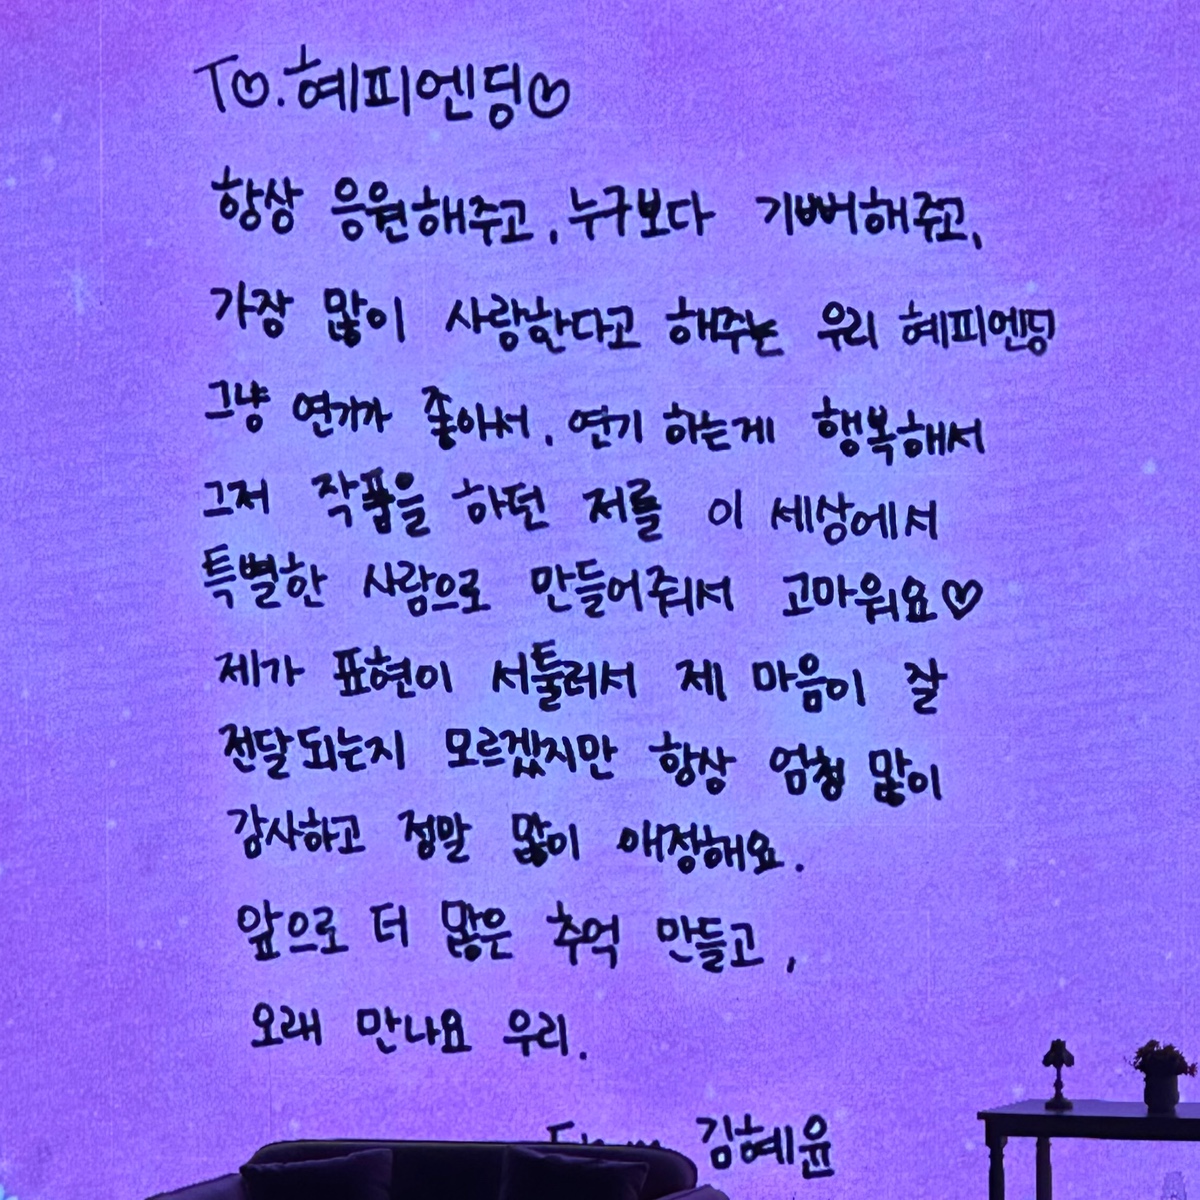 To.혜피엔딩♡
항상 응원해주고, 누구보다 기뻐해주고,
가장 많이 사랑한다고 해주는 우리 혜피엔딩
그냥 연기가 좋아서, 연기 하는게 행복해서
그저 작품을 하던 저를 이 세상에서
특별한 사람으로 만들어줘서 고마워요♡
제가 표현이 서툴러서 제 마음이 잘
전달되는지 모르겠지만 항상 엄청 많이
감사하고 정말 많이 애정해요.
앞으로 더 많은 추억 만들고,
오래 만나요 우리.
From 김혜윤